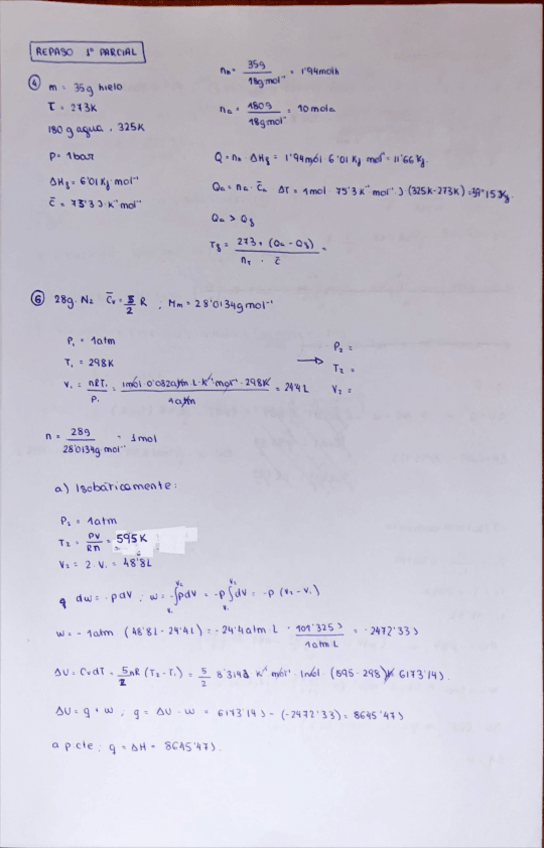 REPASO 1º PARCIAL
④ m = 35g hielo
T = 273K
180g agua, 325K
P = 1 bar
ΔHf = 6'01 Kj mol⁻¹
c̄ = 75'3 J·K⁻¹ mol⁻¹
nh = 35g / 18g mol⁻¹ = 1'94 mols
na = 180g / 18g mol⁻¹ = 10 mols
Q = nh ΔHf = 1'94 mol · 6'01 Kj mol⁻¹ = 11'66 Kj.
Qa = na · c̄a · ΔT = 1 mol · 75'3 K⁻¹ mol⁻¹ J (325K - 273K) = 39'15 Kj.
Qa > Qf
Tf = 273 + (Qa - Qf) / nT · c̄ =
⑥ 28g N2 C̄v = 5/2 R ; Mm = 28'0134g mol⁻¹
P1 = 1atm
T1 = 298K
V1 = nRT1 / P1 = 1mol 0'082atm L·K⁻¹ mol⁻¹ · 298K / 1atm = 24'4L
→ P2 =
T2 =
V2 =
n = 28g / 28'0134g mol⁻¹ = 1 mol
a) Isobáricamente:
P2 = 1atm
T2 = PV / Rn = 595 K
V2 = 2·V1 = 48'8L
q dw = -pdV ; w = -∫pdV = -p∫dV = -p (V2 - V1)
w = - 1atm (48'8L - 24'4L) = -24'4 atm L · 101'325 J / 1atm L = -2472'33 J
ΔU = CvdT = 5/2 nR (T2 - T1) = 5/2 8'314J K⁻¹ mol⁻¹ · 1mol · (595 - 298)K 6173'14J.
ΔU = q + w ; q = ΔU - w = 6173'14J - (-2472'33) = 8645'47J
a p cte ; q = ΔH = 8645'47J.